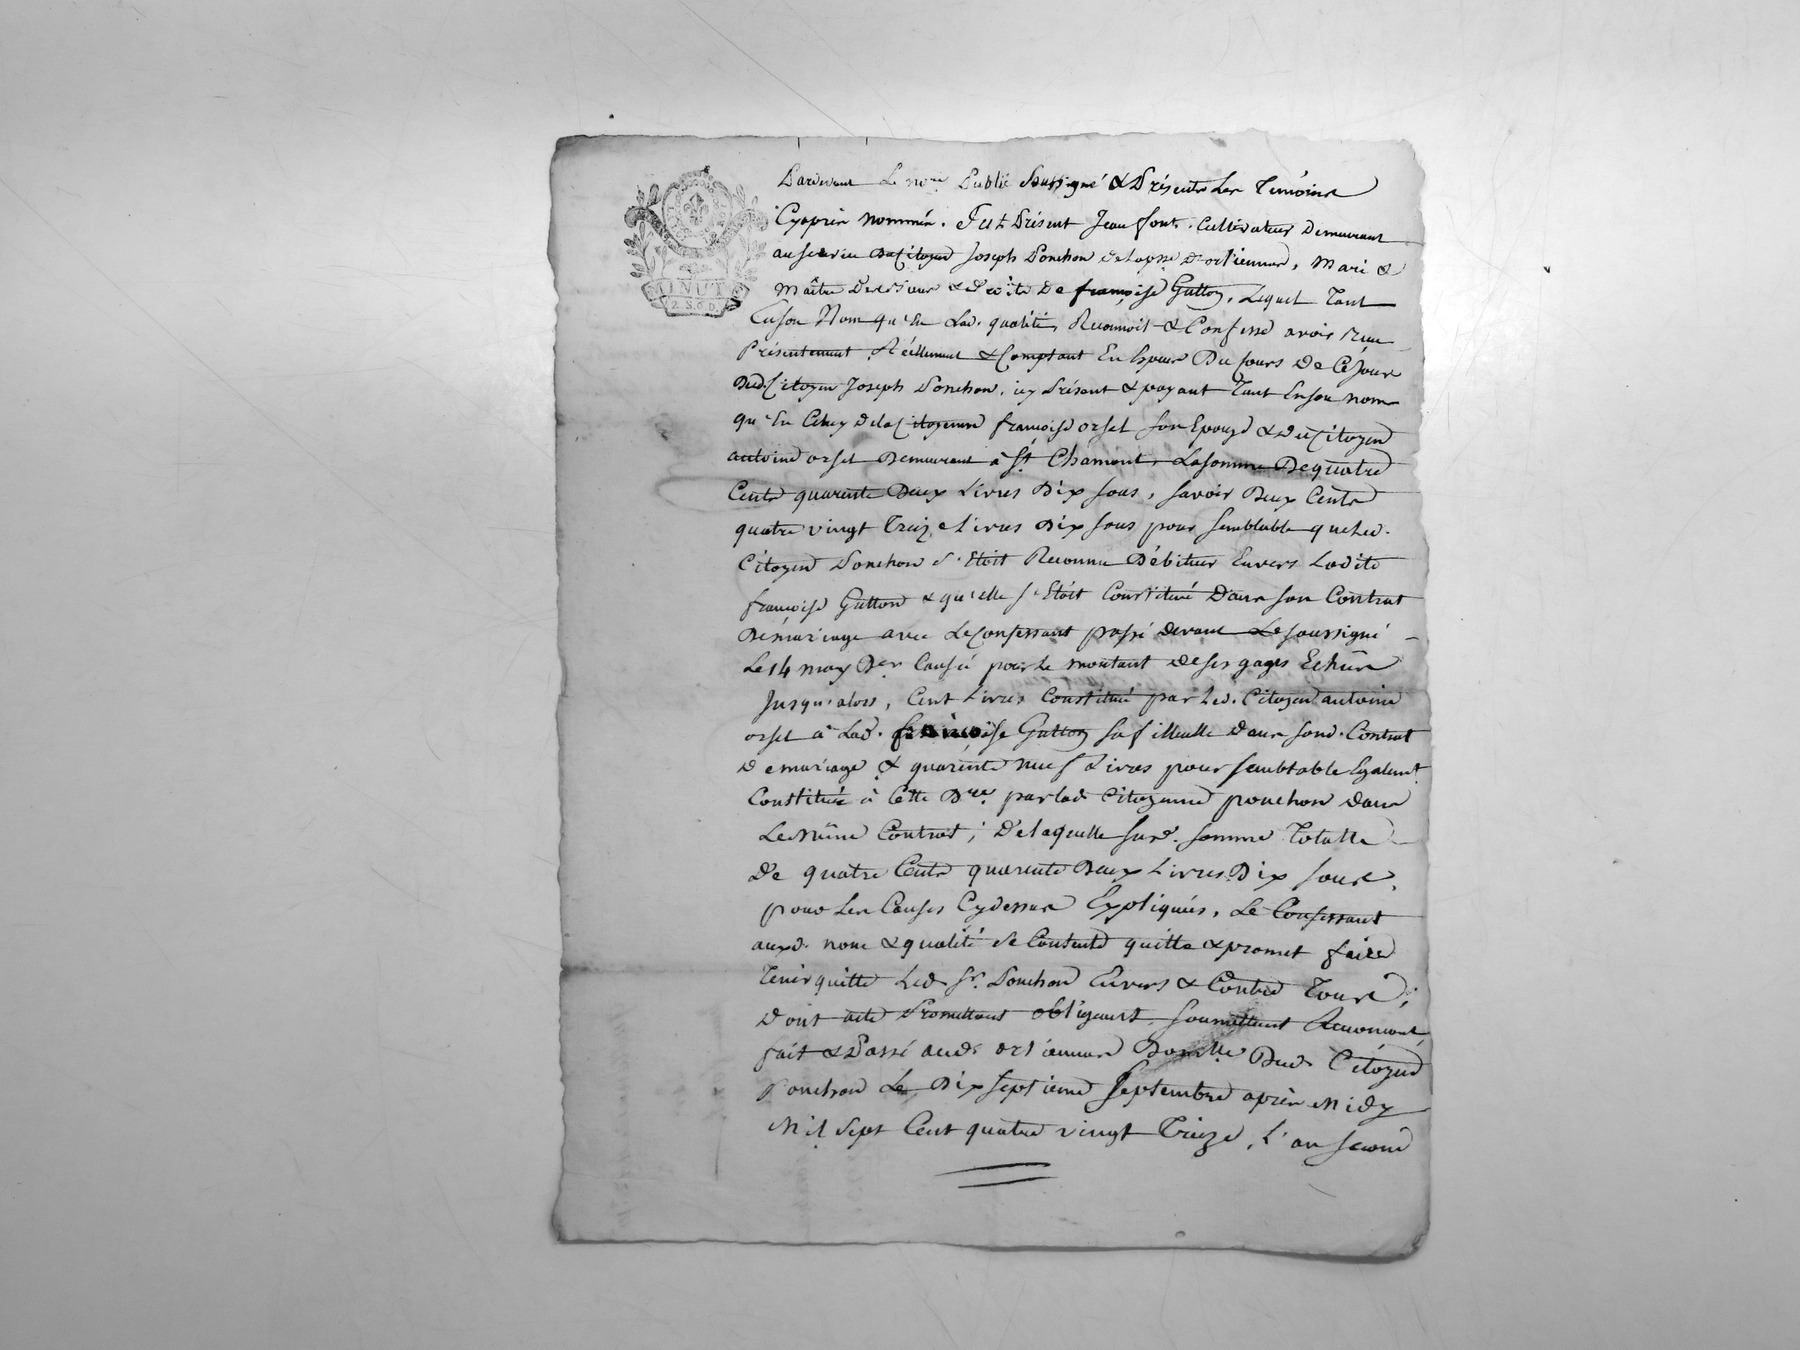 MINUTE
2 S. 6 D.
Pardevant Le nore Public Soussigné & Présents Les Temoins
Cyaprès nommés. Fut Présent Jean font. Cultivateur Demeurant
au service Du Citoyen Joseph Ponchon de la psse D'orliennas, Mari &
Maître Des Biens & Droits De françoise Gutton, Lequel Tant
En son Nom qu'En Lad. qualité, Reconnoit & Confesse avoir Reçu
Présentement, Réellement & Comptant En Espèces Du Cours De Ce Jour
Dud. Citoyen Joseph Ponchon, icy Présent & payant Tant En son nom
qu'En Celuy De la Citoyenne françoise orsel son Epouse & Du Citoyen
antoine orsel Demeurant à St Chamont, La somme De quatre
Cents quarente Deux Livres Dix sous, savoir Deux Cents
quatre vingt Treize Livres Dix sous pour semblable que Led.
Citoyen Ponchon s'Etoit Reconnu Débiteur Envers Ladite
françoise Gutton & qu'elle s'Etoit Constitué Dans son Contrat
De mariage avec Le Confessant passé devant Le soussigné
Le 14 may Der Causé pour Le montant De ses gages Echûs
Jusqu'alors, Cent Livres Constitué par Led. Citoyen antoine
orsel à Lad. françoise Gutton sa filleulle Dans sond. Contrat
De mariage & quarente neuf Livres pour semblable Egalemt
Constitué à Cette Dre par lad Citoyenne ponchon Dans
Le Même Contrat; De laquelle susd. somme Totalle
De quatre Cents quarente Deux Livres Dix sous,
pour Les Causes Cydessus Expliquées, Le Confessant
auxd. nom & qualité se Contente quitte & promet faire
Tenir quitte Led Sr. Ponchon Envers & Contre Tous;
Dont acte Promettant obligeant, soumettant Renoncant,
fait & Passé aud. orliennas Domlle Dud. Citoyen
Ponchon Le Dix septieme Septembre après Midy
Mil Sept Cent quatre vingt Treize, L'an second